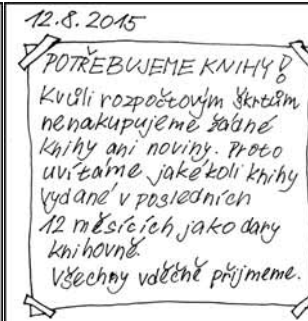 12.8.2015
POTŘEBUJEME KNIHY!
Kvůli rozpočtovým škrtům
nenakupujeme žádné
knihy ani noviny. Proto
uvítáme jakékoli knihy
vydané v posledních
12 měsících jako dary
knihovně.
Všechny vděčně přijmeme.